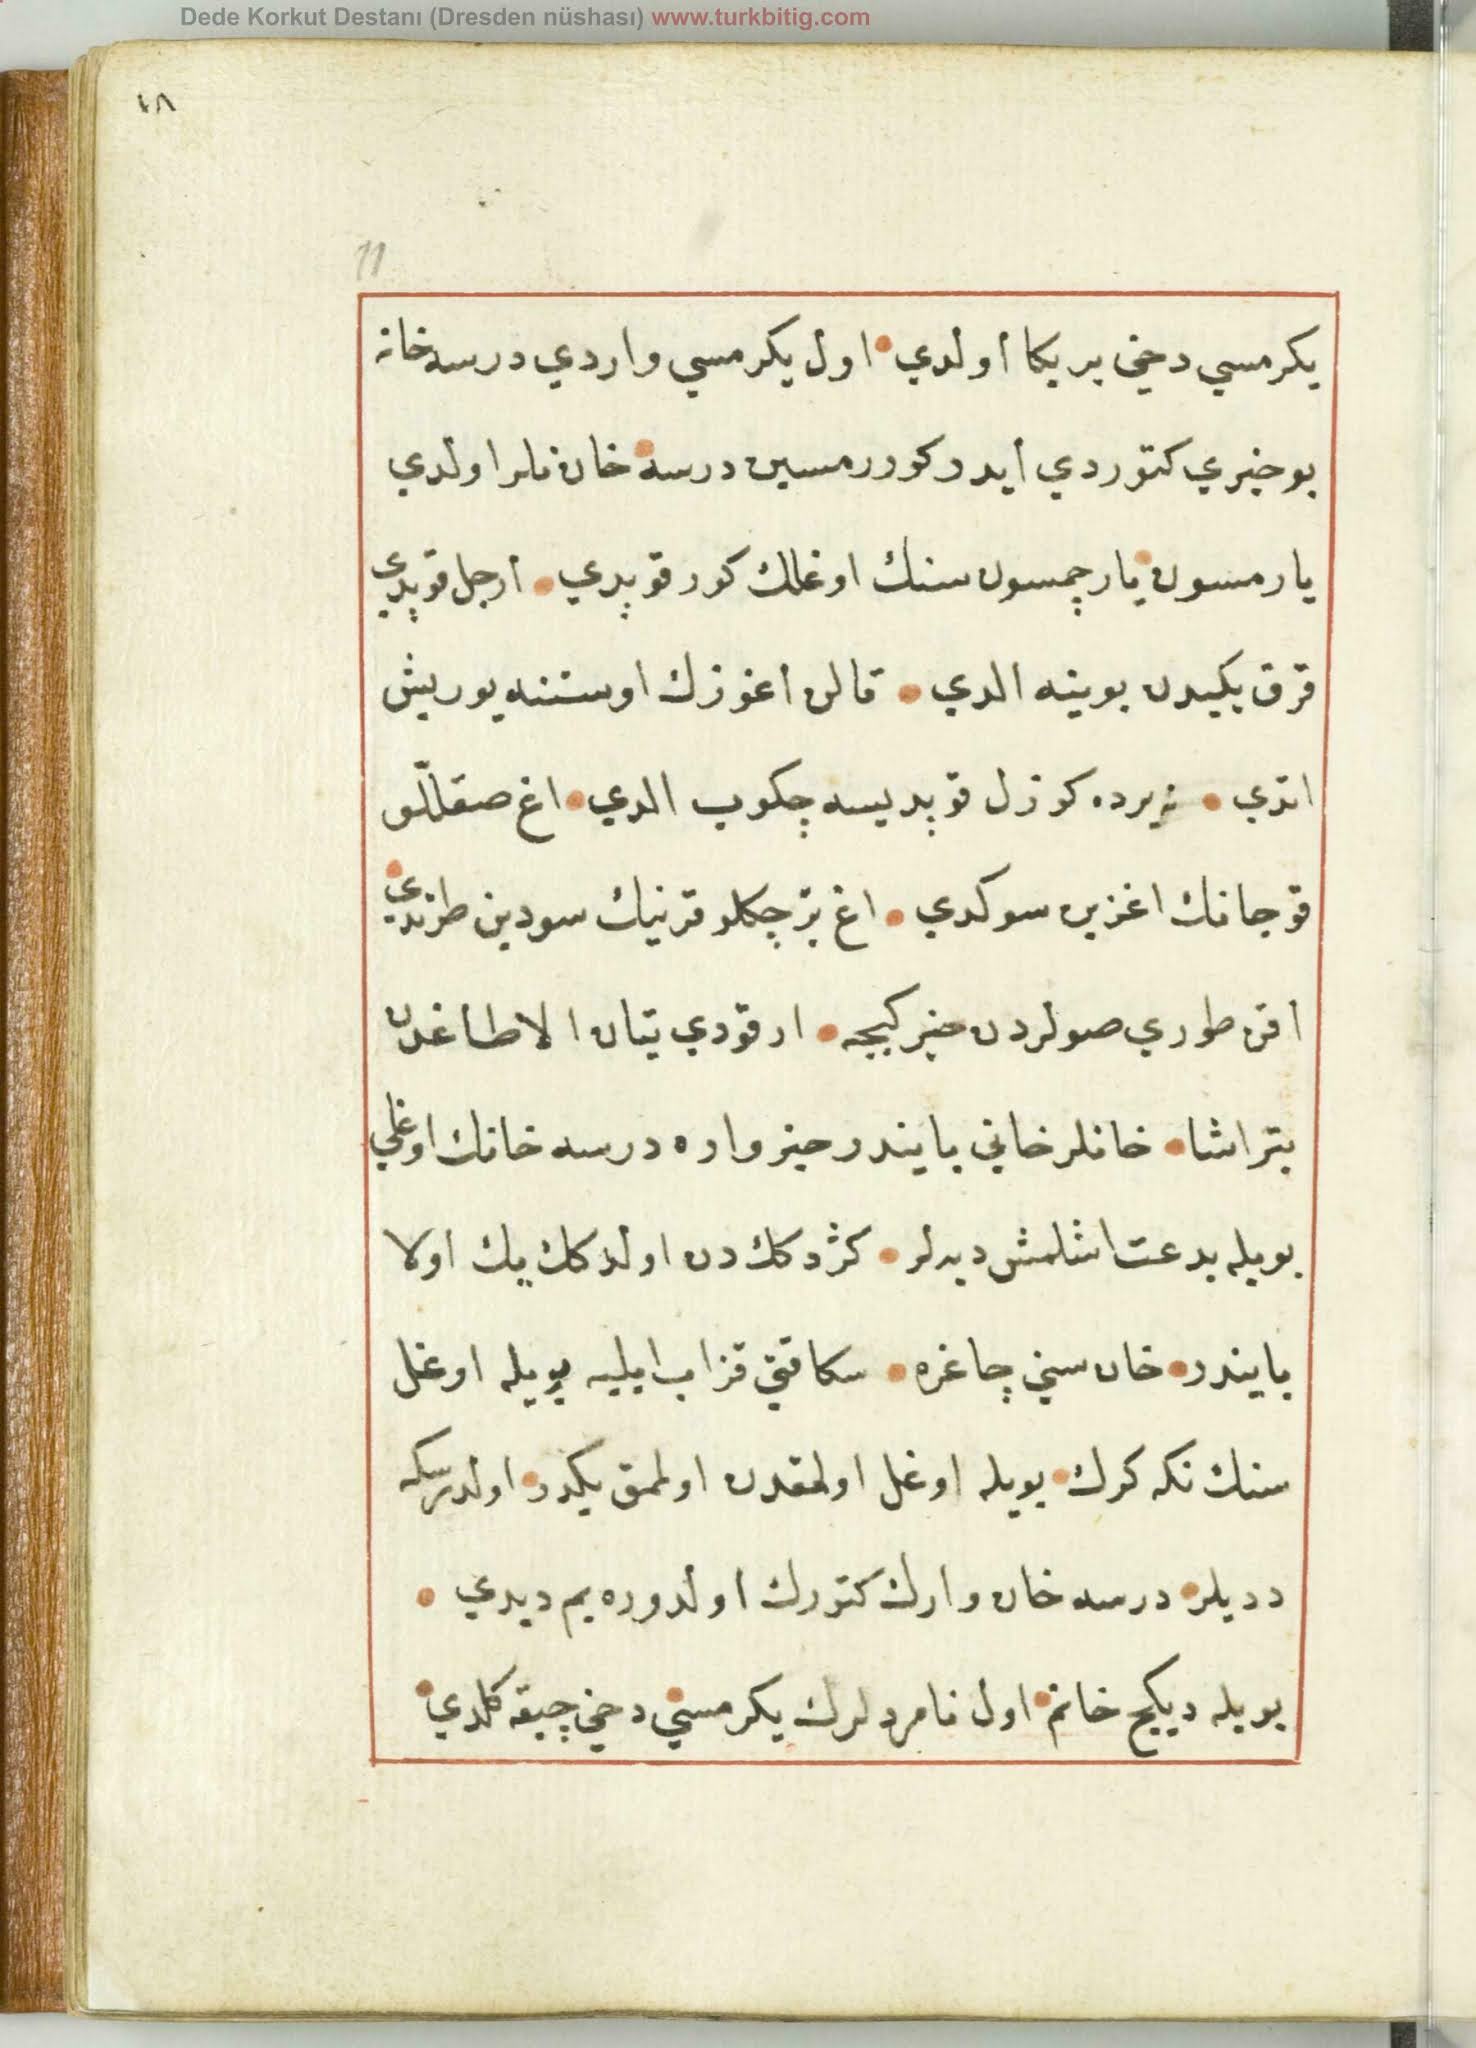 Dede Korkut Destanı (Dresden nüshası) www.turkbitig.com
٤٨
11
يكرمسي دخي بر يكا أولدي اول يكرمسي واردي درسه خانه
بو خبري كتوردي أيدر كوررمسين درسه خان نلر اولدي
يارمسون يارچمسون سنك اوغلك كور قوپدي أرجل قوپدي
قرق يكيدن بوينه الدي قالن أغوزك اوستنه يوريش
اتدي نه يرده كوزل قوپديسه چكوب الدي اغ صقللو
قوجانك اغزين سوكدي اغ بز چكلو قرنيك سودين طرتدي
اقن طوري صولردن خبر كيچه ارقودي يتان الا طاغدن
بتر اشا خانلر خاني بايندر خبر واره درسه خانك اوغلي
بويله بدعت اشلمش ديه لر كزدكك دن اولدكك يك اولا
بايندر خان سني چاغره سكا قتي قزاب ايليه بويله اوغل
سنك نكه كرك بويله اوغل اولمقدن اولممق يكدر اولدرسكه
دديلر درسه خان وارك كتورك أولدوره يم ديدي
بويله ديكج خانم اول نامردلرك يكرمسي دخي چيقه كلدي